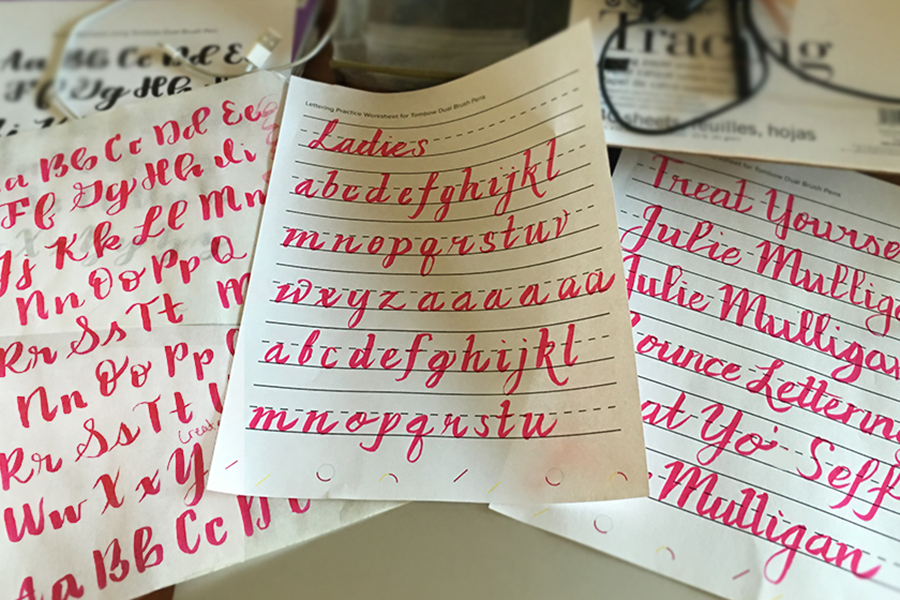 Aa Bb Cc Dd E
Tracing
sheets, feuilles, hojas
Lettering Practice Worksheet for Tombow Dual Brush Pens
Ladies
abcdefghijkl
mnopqrstuv
wxyz aaaaaa
abcdefghijkl
mnopqrstu
Bb Cc Dd Ee
Ff Gg Hh Ii
Kk Ll Mm
Nn Oo Pp Q
Rr Ss Tt
Nn Oo Pp
Rr Ss Tt
Ww Xx Y
Aa Bb Cc D
Tombow Dual Brush Pens
Treat Yourse
Julie Mulliga
Julie Mulligan
ounce Lettering
at Yo' Self
Mulligan